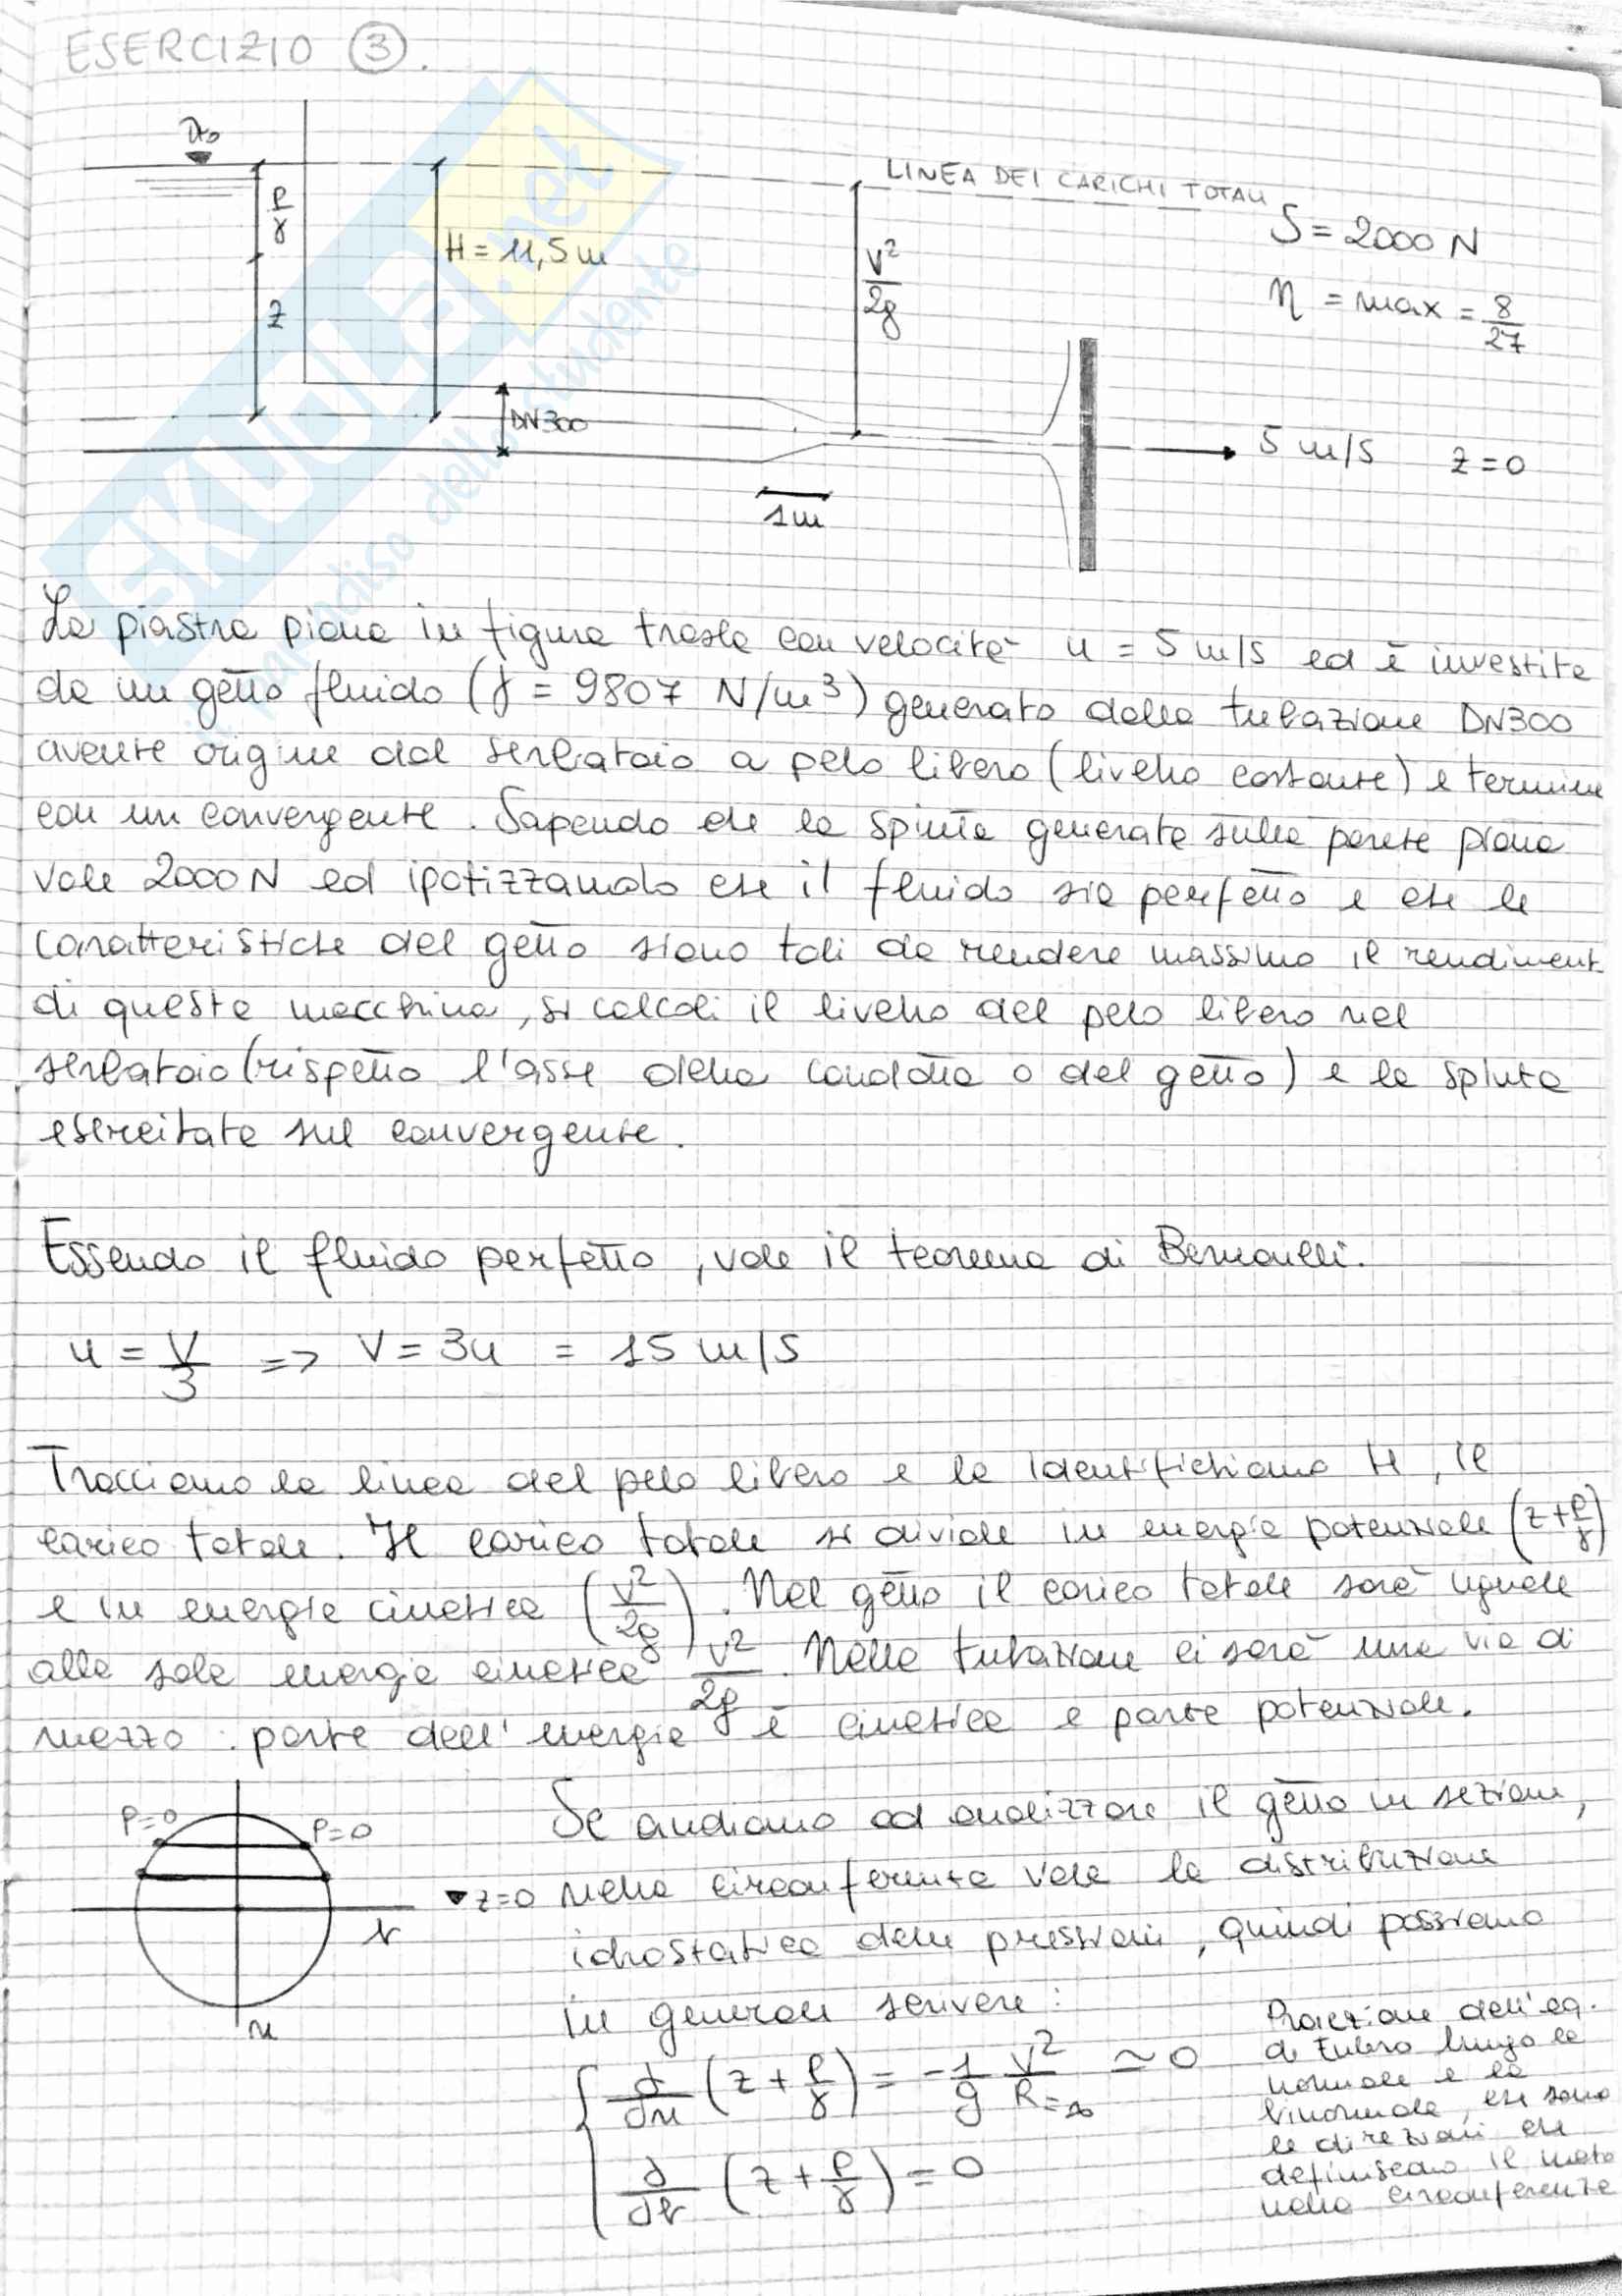 ESERCIZIO 3.
P/γ
z
H = 11,5 m
LINEA DEI CARICHI TOTALI
V²/2g
S = 2000 N
η = max = 8/27
DN300
5 m/s z=0
1m
La piastra piana in figura trasla con velocità u = 5 m/s ed è investita
da un getto fluido (γ = 9807 N/m³) generato dalla tubazione DN300
avente origine dal serbatoio a pelo libero (livello costante) e termina
con un convergente. Sapendo che la spinta generata sulla parete piana
vale 2000 N ed ipotizzando che il fluido sia perfetto e che le
caratteristiche del getto siano tali da rendere massimo il rendiment
di questa macchina, si calcoli il livello del pelo libero nel
serbatoio (rispetto l'asse della condotta o del getto) e la spinta
esercitata sul convergente.
Essendo il fluido perfetto, vale il teorema di Bernoulli.
u = V/3 => V = 3u = 15 m/s
Tracciamo la linea del pelo libero e la identifichiamo H, il
carico totale. Il carico totale si divide in energia potenziale (z+P/γ)
e in energia cinetica (V²/2g). Nel getto il carico totale sarà uguale
alla sola energia cinetica V²/2g. Nella tubazione ci sarà una via di
mezzo: parte dell'energia è cinetica e parte potenziale.
P=0 P=0
z=0
b
n
Se andiamo ad analizzare il getto in sezione,
nella circonferenza vale la distribuzione
idrostatica delle pressioni, quindi possiamo
in generale scrivere:
∂/∂n (z + P/γ) = -1/g V²/R=∞ ≃ 0
∂/∂b (z + P/γ) = 0
Proiezione dell'eq.
di Eulero lungo la
normale e la
binormale, che sono
le direzioni che
definiscono il moto
nella circonferenza
skuola.net
il paradiso dello studente